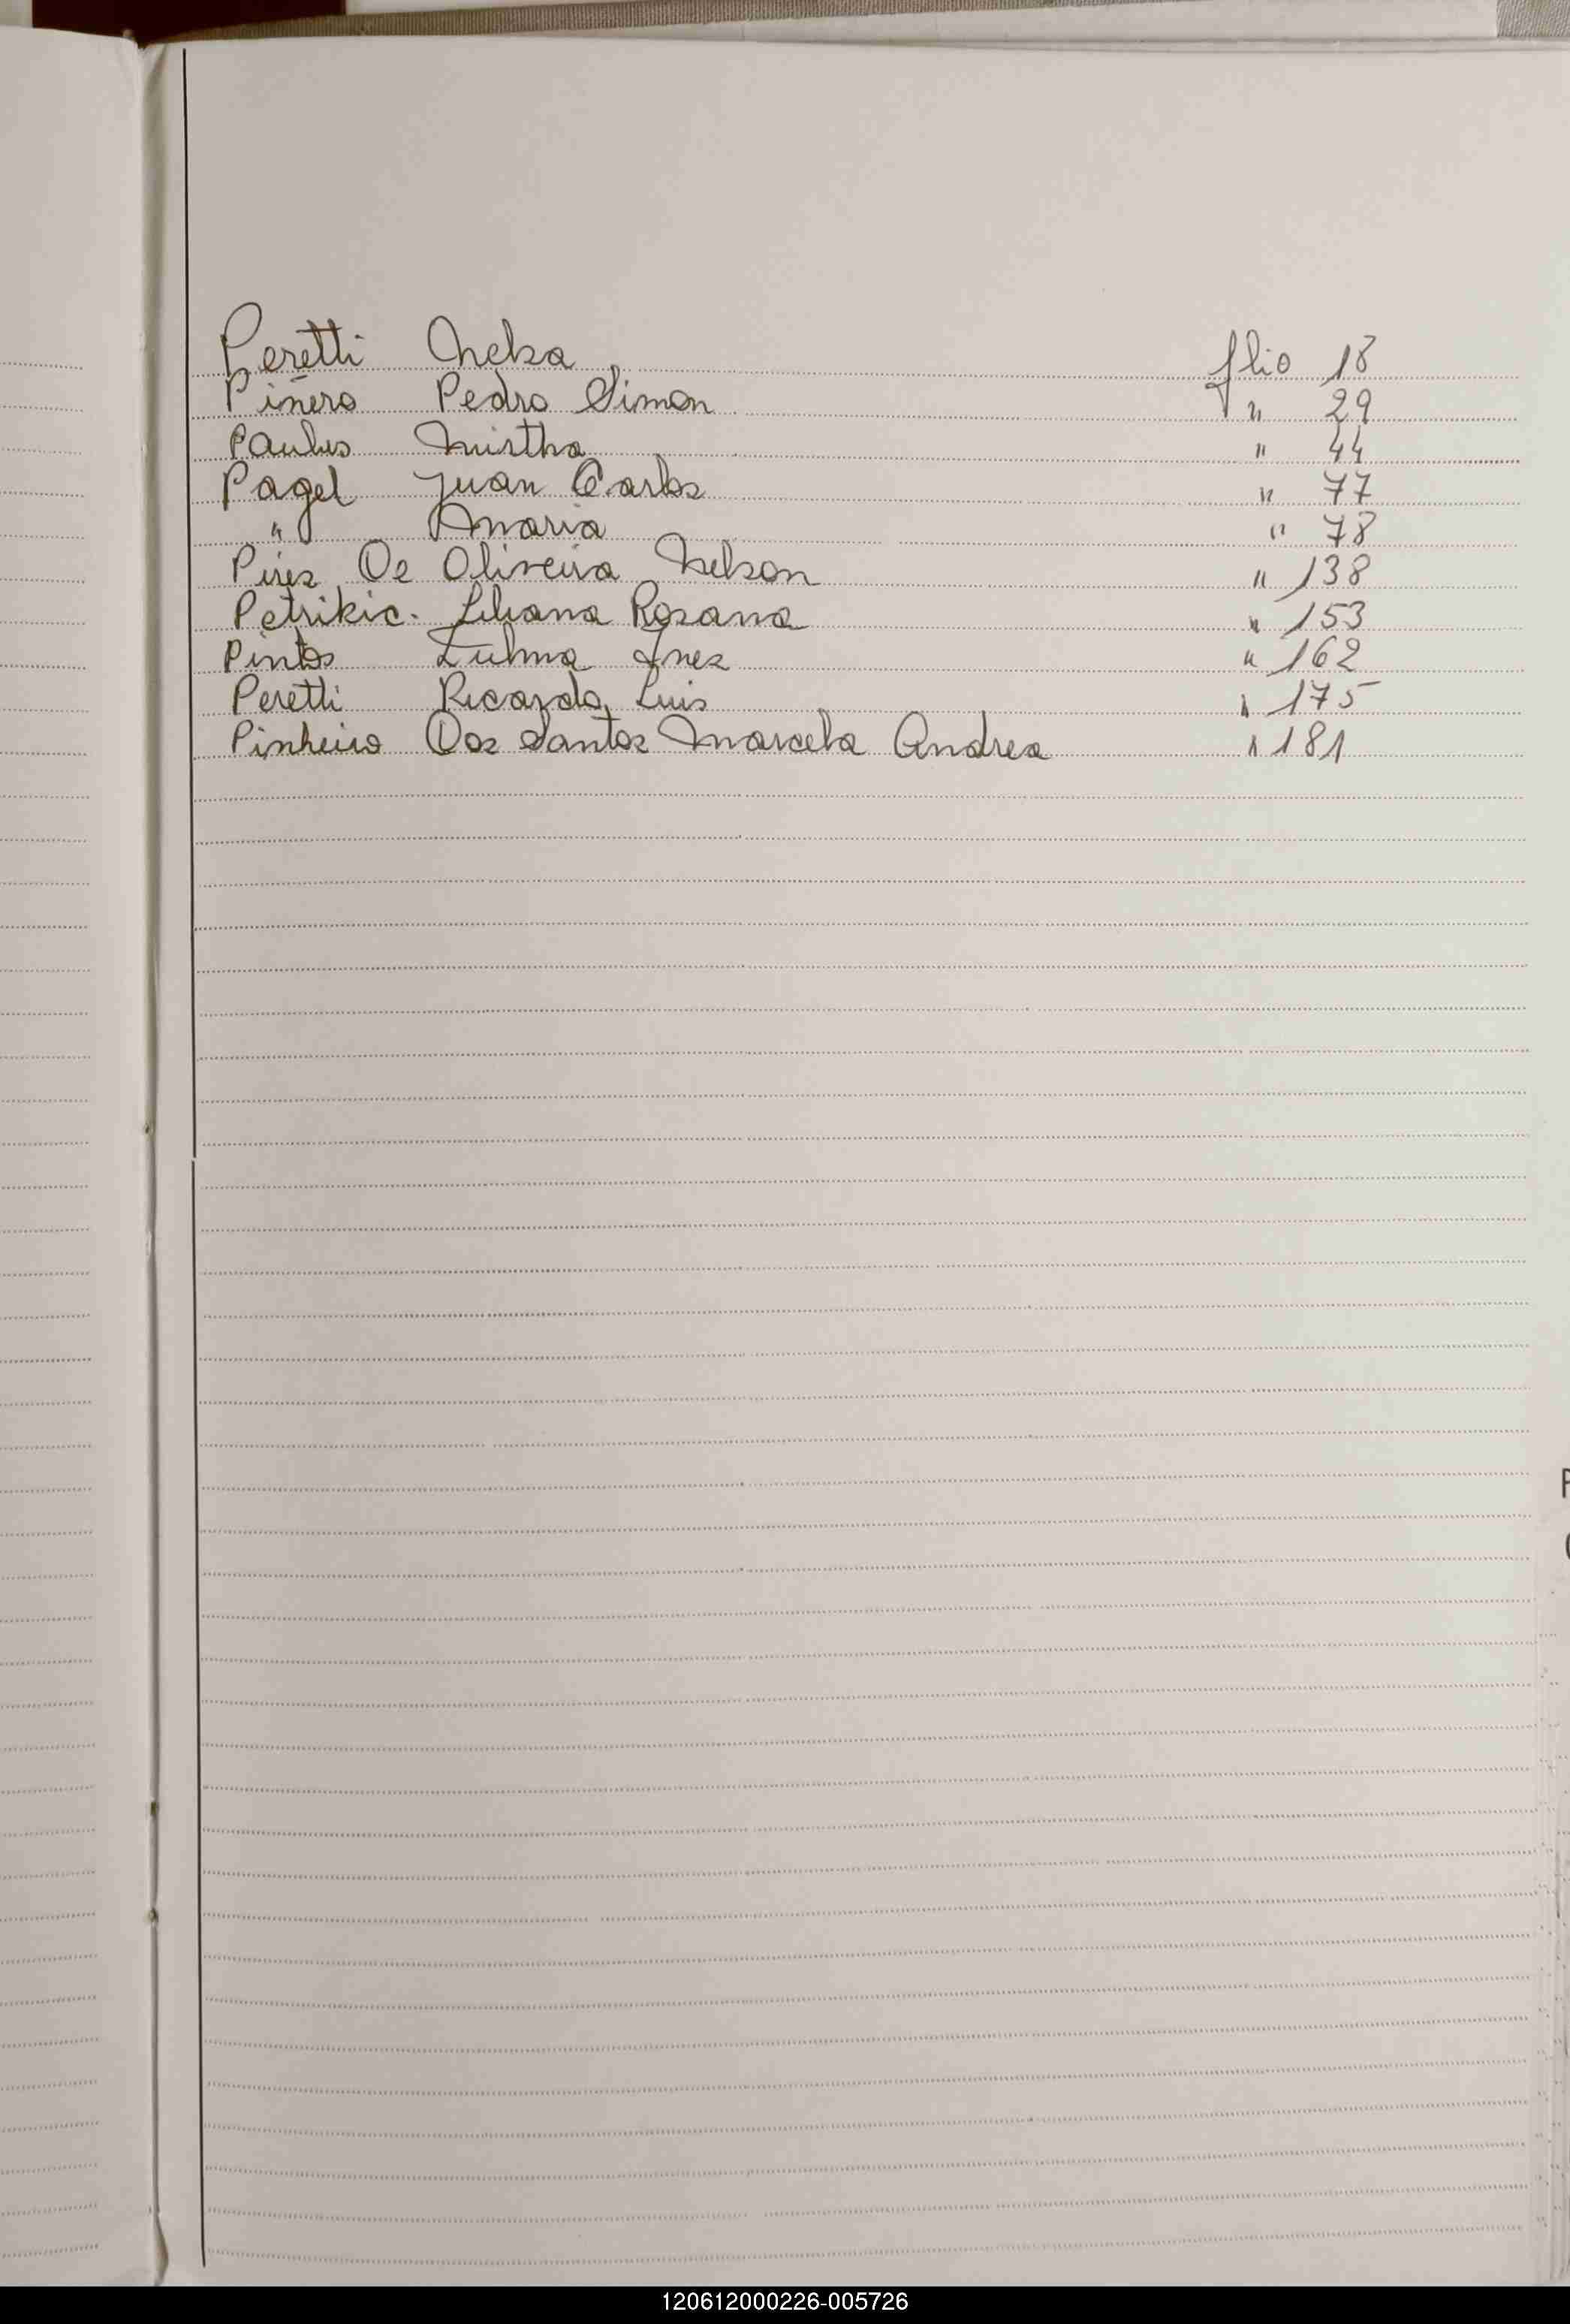 Peretti Nelsa flio 18
Piñero Pedro Simon " 29
Paulus Mirtha " 44
Pagel Juan Carlos " 77
" Maria " 78
Pires De Oliveira Nelson " 138
Petrikic. Liliana Rosana " 153
Pintos Zulma Ines " 162
Peretti Ricardo Luis " 175
Pinheiro Dos Santos Marcela Andrea " 181
P
120612000226-005726